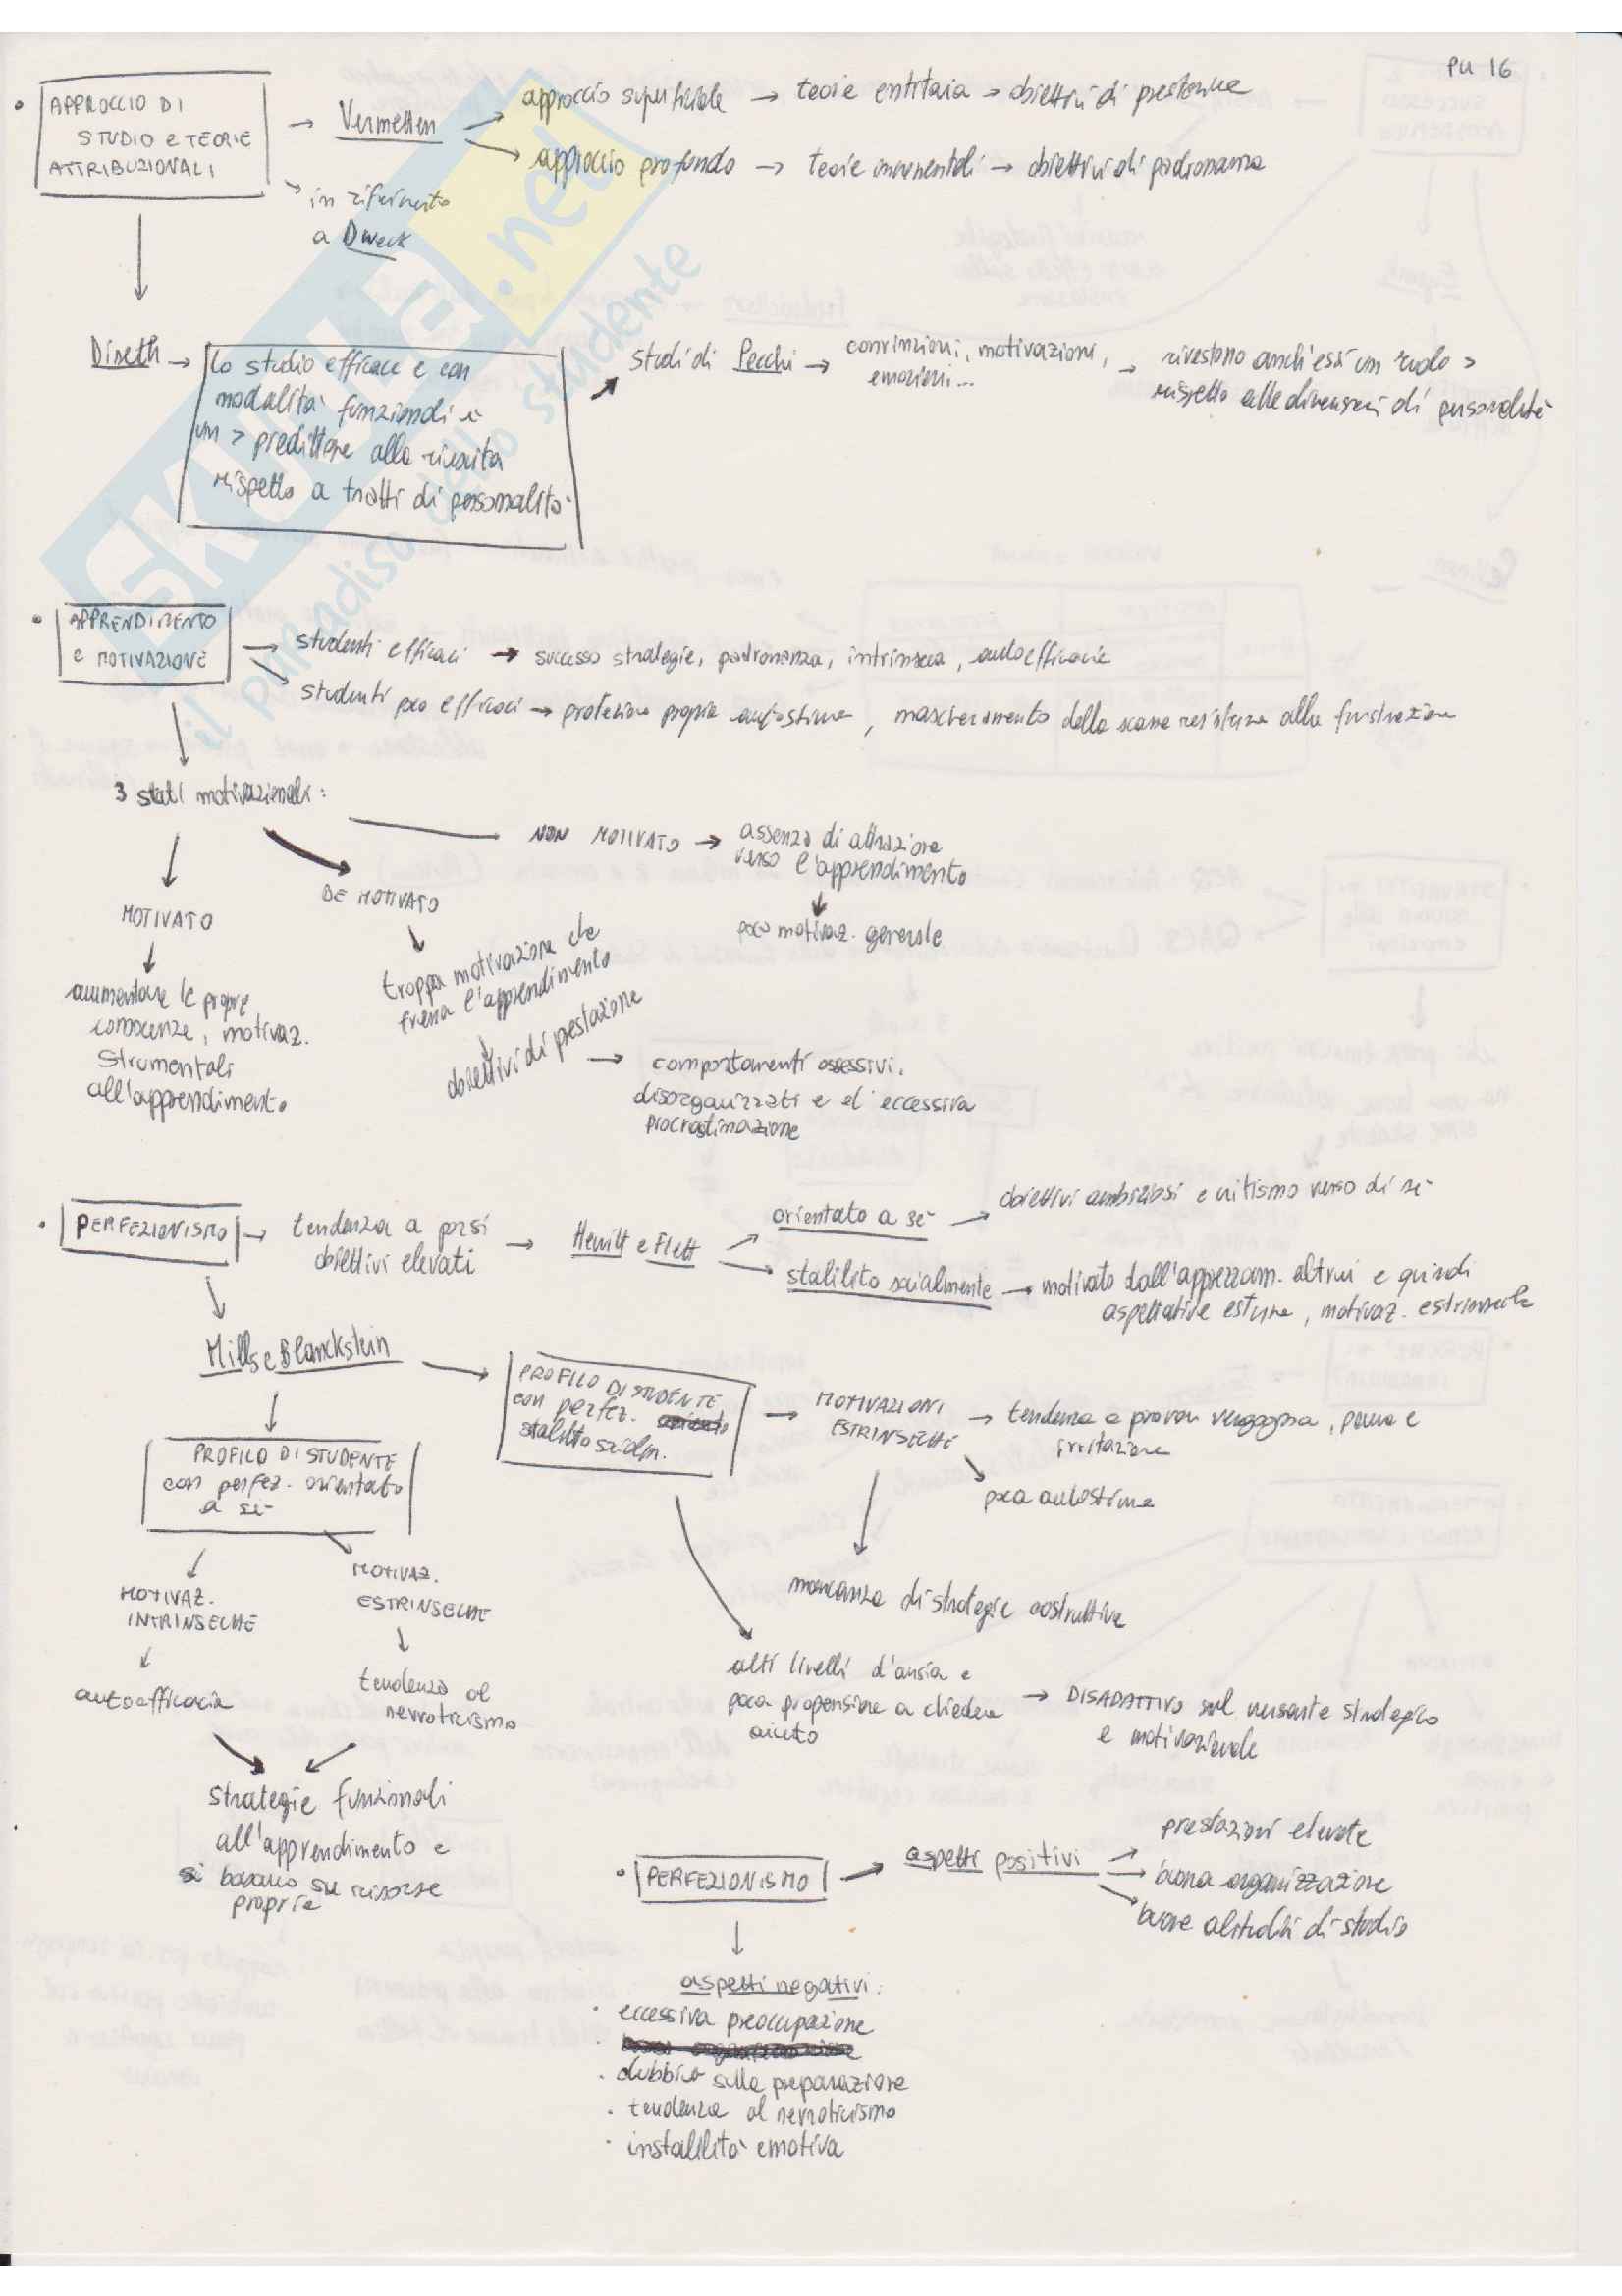 PU 16
• APPROCCIO DI
STUDIO e TEORIE
ATTRIBUZIONALI
→ Vermetten
→ approccio superficiale → teorie entitaria → obiettivi di prestazione
→ approccio profondo → teorie incrementali → obiettivi di padronanza
→ in riferimento
a Dweck
Diseth →
lo studio efficace e con
modalità funzionali è
un > predittore alla riuscita
rispetto a tratti di personalità
studi di Pecchi →
convinzioni, motivazioni,
emozioni...
→ rivestono anch'essi un ruolo >
rispetto alle dimensioni di personalità
• APPRENDIMENTO
e MOTIVAZIONE
→ studenti efficaci → successo strategie, padronanza, intrinseca, autoefficacia
studenti poco efficaci → protezione propria autostima, mascheramento della scarsa resistenza alla frustrazione
3 stati motivazionali:
NON MOTIVATO →
assenza di attrazione
verso l'apprendimento
poco motivaz. generale
DE MOTIVATO
troppa motivazione che
frena l'apprendimento
obiettivi di prestazione →
comportamenti ossessivi,
disorganizzati e d'eccessiva
procrastinazione
MOTIVATO
aumentare le proprie
conoscenze, motivaz.
strumentali
all'apprendimento
• PERFEZIONISMO →
tendenza a porsi
obiettivi elevati
→ Hewitt e Flett
orientato a sé → obiettivi ambiziosi e criticismo verso di sé
stabilito socialmente → motivato dall'apprezzam. altrui e quindi
aspettative esterne, motivaz. estrinseche
Mills e Blanckstein
PROFILO DI STUDENTE
con perfez.
stabilito socialm.
→ MOTIVAZIONI
ESTRINSECHE
→ tendenza a provare vergogna, paura e
irritazione
poca autostima
mancanza di strategie costruttive
alti livelli d'ansia e
poca propensione a chiedere
aiuto
→ DISADATTIVO sul versante strategico
e motivazionale
PROFILO DI STUDENTE
con perfez. orientato
a sé
MOTIVAZ.
INTRINSECHE
autoefficacia
MOTIVAZ.
ESTRINSECHE
tendenza al
nevroticismo
strategie funzionali
all'apprendimento e
si basano su risorse
proprie
• PERFEZIONISMO → aspetti positivi
prestazioni elevate
buona organizzazione
buone abitudini di studio
aspetti negativi:
• eccessiva preoccupazione
• dubbio sulla preparazione
• tendenza al nevroticismo
• instabilità emotiva
SKUOLA.net
il paradiso dello studente